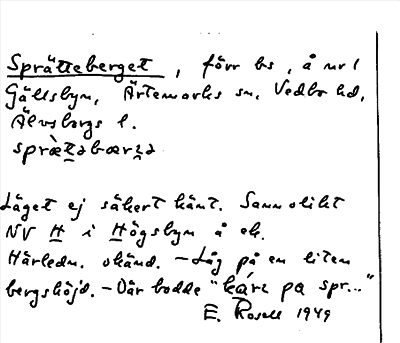 Sprätteberget, förr bs, å nr 1
Gällsbyn, Ärtemarks sn, Vedbo hd,
Älvsborgs l.
sprètəbærʒə
Läget ej säkert känt. Sannolikt
NV H i Högsbyn å ek.
Härledn. okänd. – Låg på en liten
bergshöjd. – Där bodde "kári pa spr..."
E. Rosell 1949